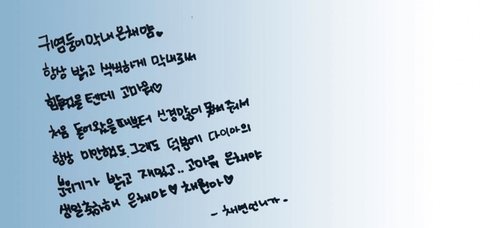 귀염둥이 막내 은채양♥
항상 밝고 씩씩하게 막내로써
힘들었을텐데 고마워♡
처음 들어왔을때부터 신경많이 못써줘서
항상 미안했어도.그래도 덕분에 다이아의
분위기가 밝고 재밌고.. 고마워 은채야
생일축하해 은채야♡ 채원아♡
- 채연언니가 -